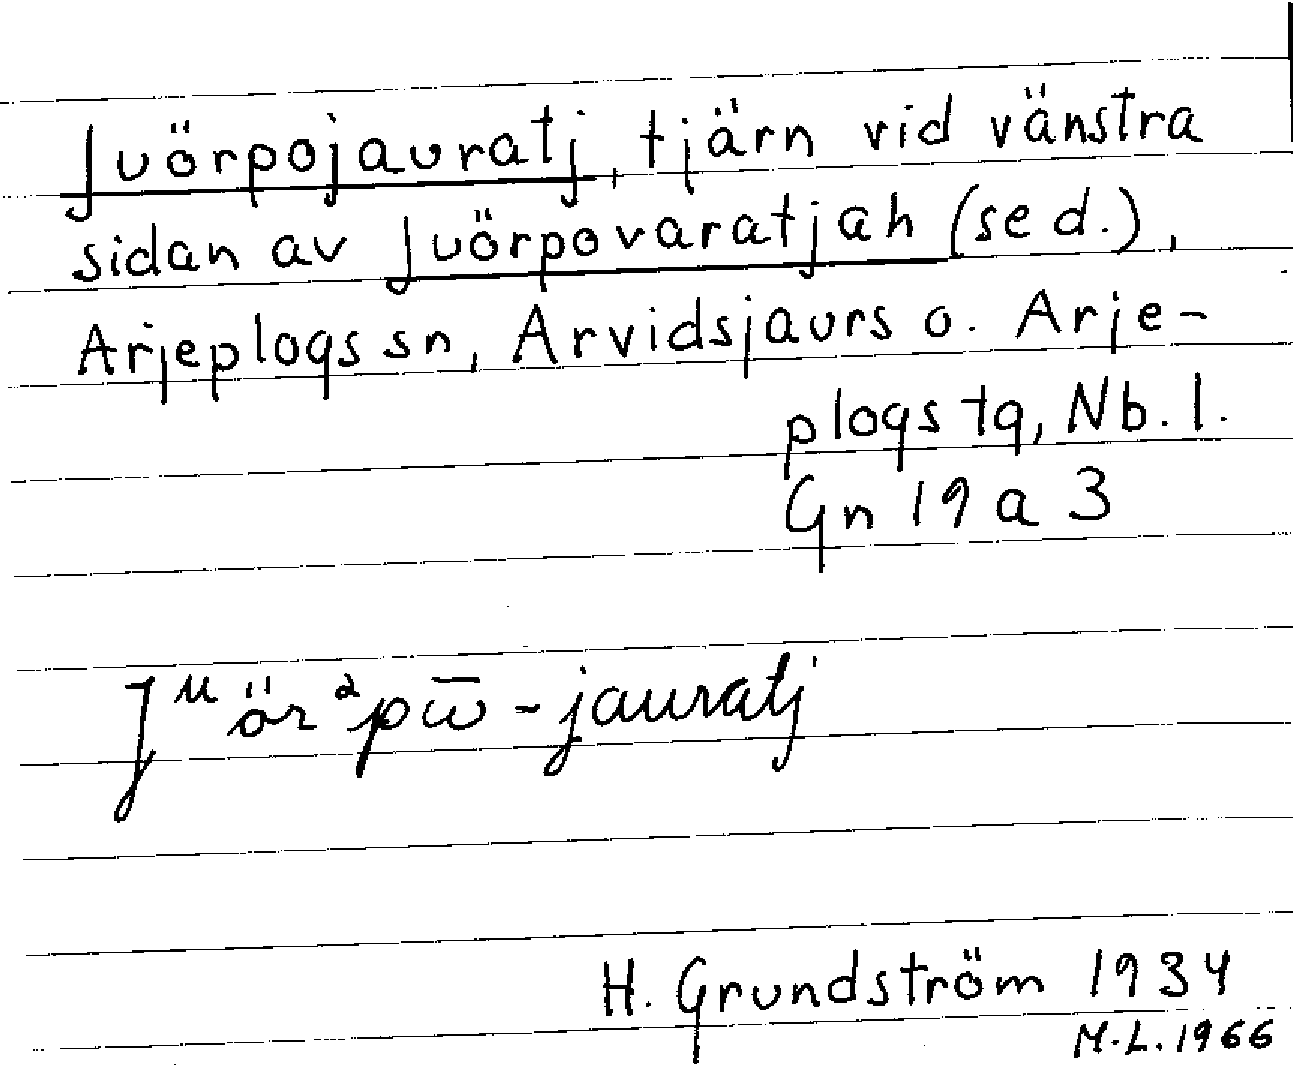 Juörpojauratj, tjärn vid vänstra
sidan av Juörpovaratjah (se d.),
Arjeplogs sn, Arvidsjaurs o. Arje-
plogs tg, Nb. l.
Gn 19 a 3
Jᵘörᵊpω̄-jauratj
H. Grundström 1934
M.L. 1966